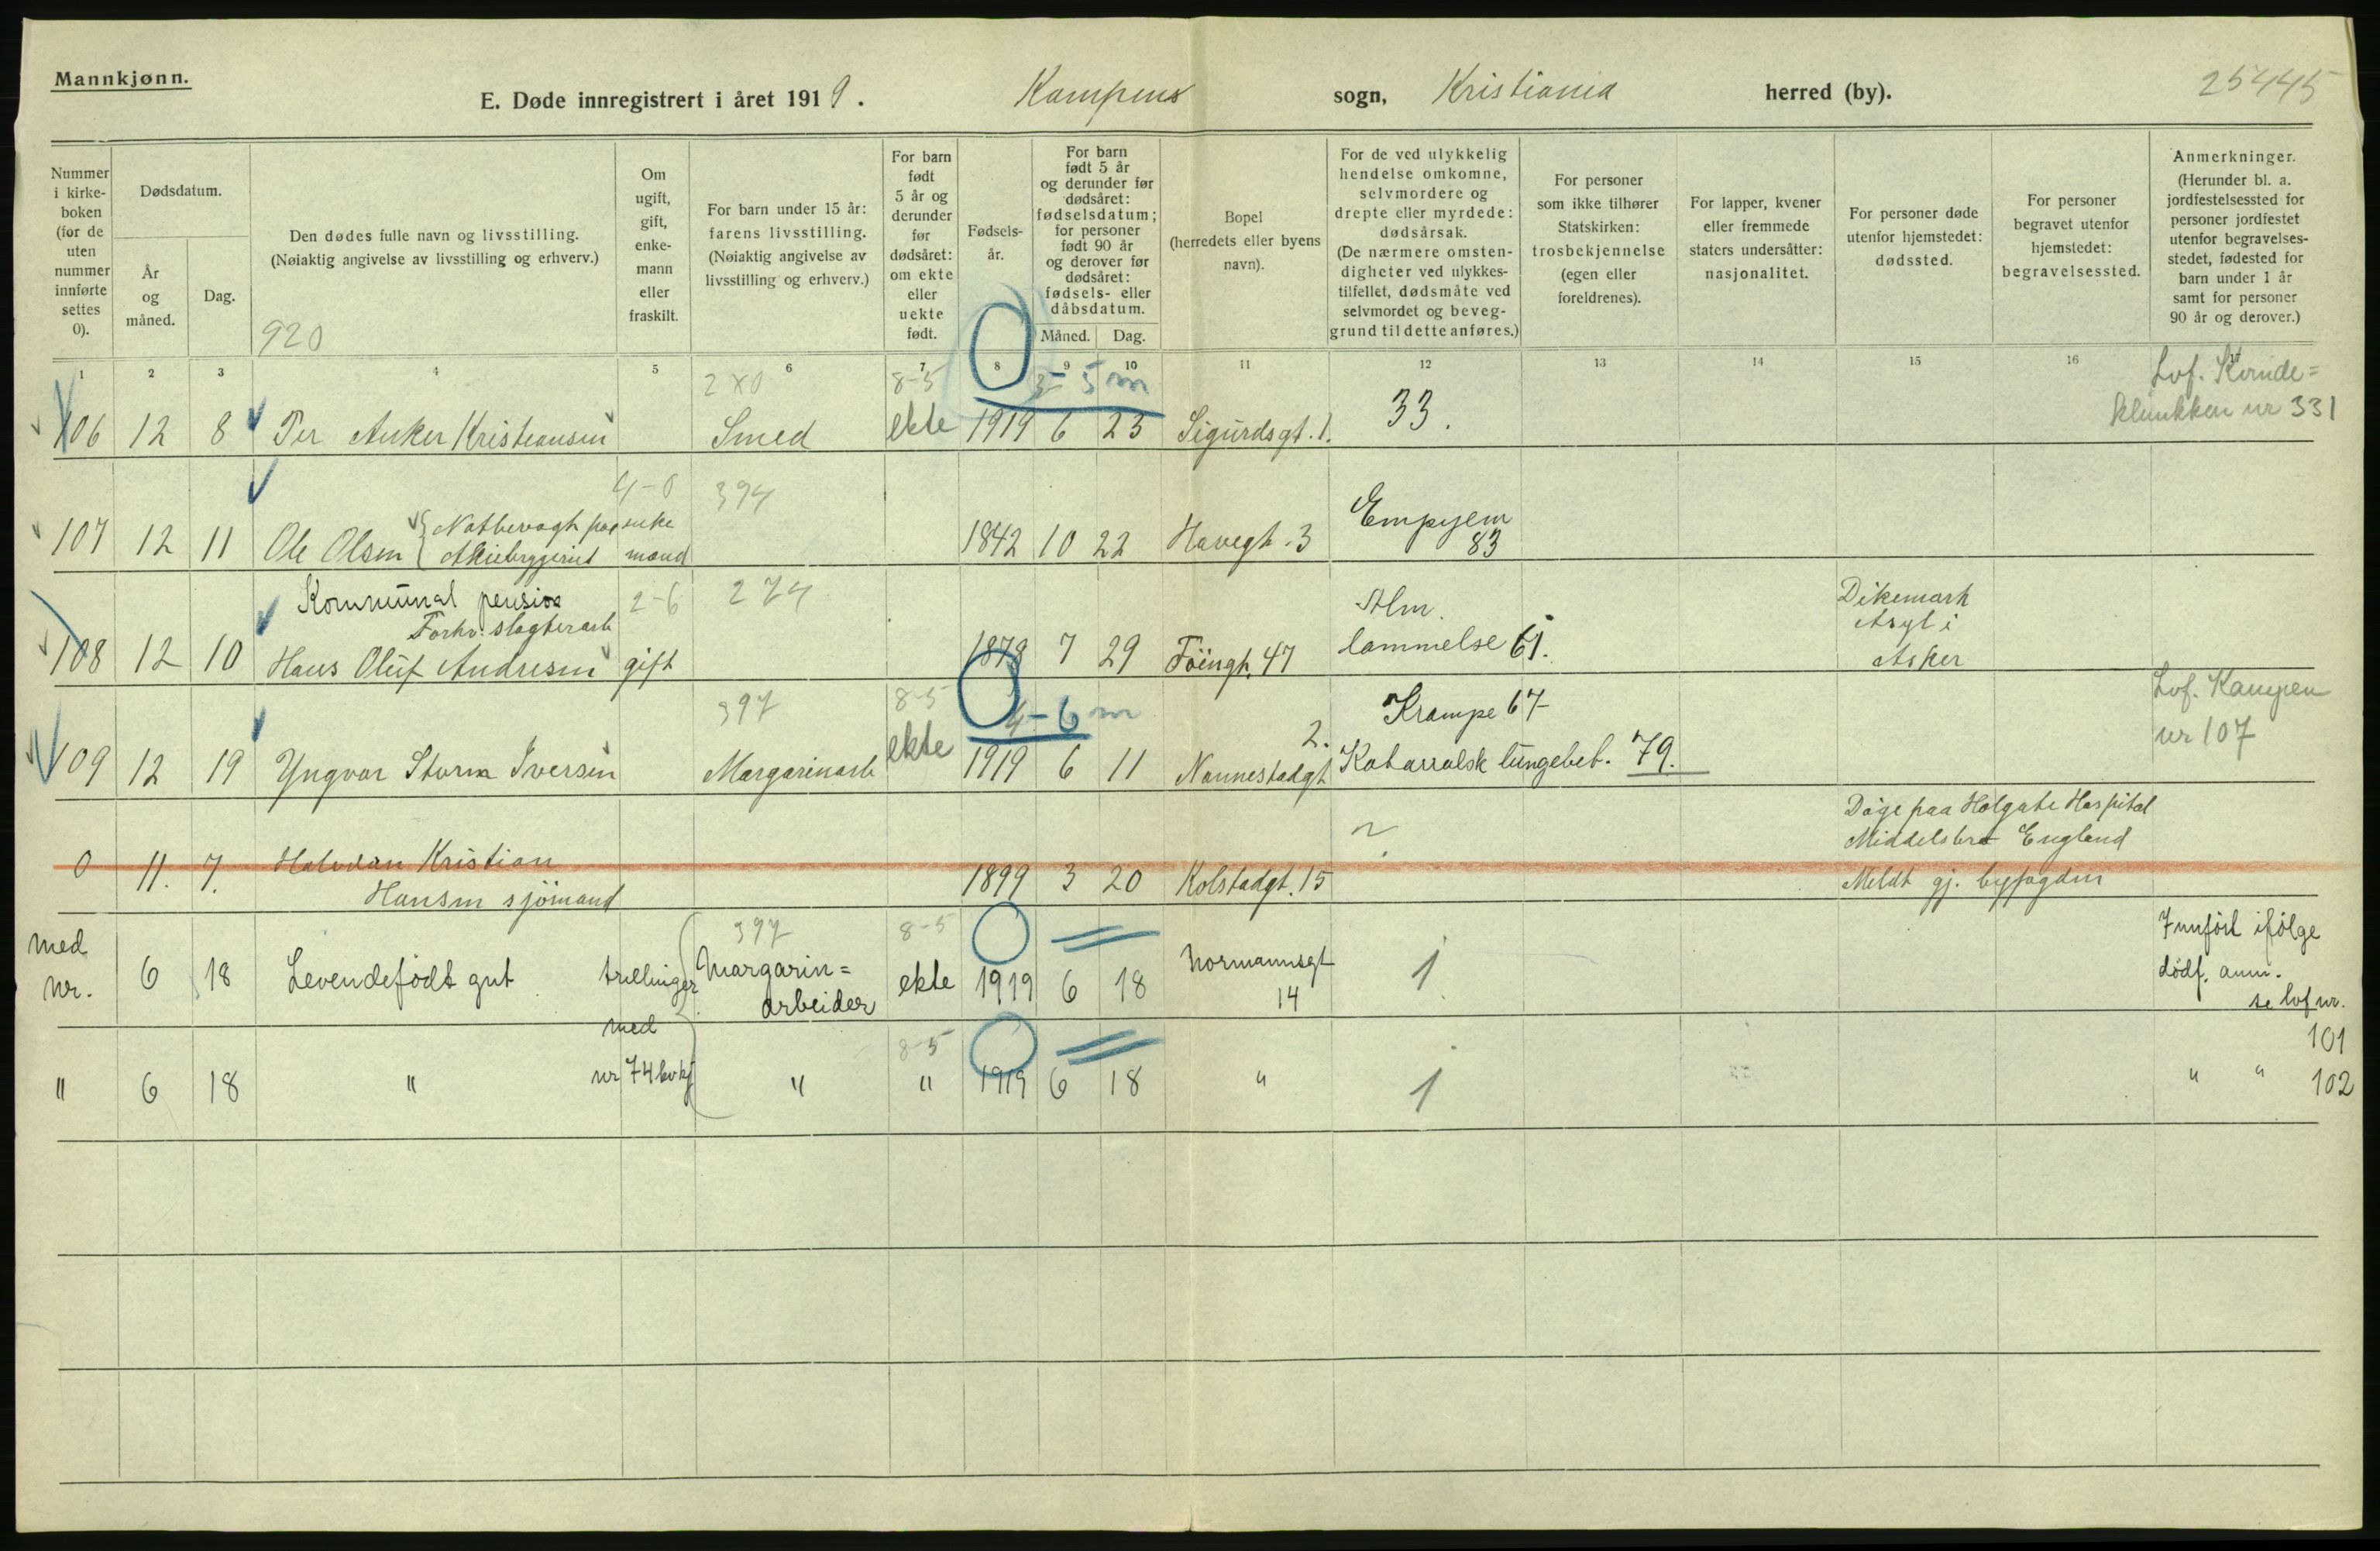 Mannkjønn.
E. Døde innregistrert i året 1919. Kampens sogn, Kristiania herred (by). 25445
Nummer i kirke-boken (for de uten nummer innførte settes 0).
Dødsdatum.
År og måned.
Dag.
Den dødes fulle navn og livsstilling.
(Nøiaktig angivelse av livsstilling og erhverv.)
920
Om ugift, gift, enke-mann eller fraskilt.
For barn under 15 år: farens livsstilling. (Nøiaktig angivelse av livsstilling og erhverv.)
For barn født 5 år og derunder før dødsåret: om ekte eller uekte født.
Fødsels-år.
For barn født 5 år og derunder før dødsåret: fødselsdatum; for personer født 90 år og derover før dødsåret: fødsels- eller dåbsdatum.
Måned. Dag.
Bopel (herredets eller byens navn).
For de ved ulykkelig hendelse omkomne, selvmordere og drepte eller myrdede: dødsårsak. (De nærmere omsten-digheter ved ulykkes-tilfellet, dødsmåte ved selvmordet og beveg-grund til dette anføres.)
For personer som ikke tilhører Statskirken: trosbekjennelse (egen eller foreldrenes).
For lapper, kvener eller fremmede staters undersåtter: nasjonalitet.
For personer døde utenfor hjemstedet: dødssted.
For personer begravet utenfor hjemstedet: begravelsessted.
Anmerkninger. (Herunder bl. a. jordfestelsessted for personer jordfestet utenfor begravelses-stedet, fødested for barn under 1 år samt for personer 90 år og derover.)
1 2 3 4 5 6 7 8 9 10 11 12 13 14 15 16
280 8-5 0 5-5 m Lof. Kvinde=
106 12 8 Per Anker Kristiansen Smed ekte 1919 6 23 Sigurdsgt. 1. 33. klinikken nr 331
4-0 394
Natbevagt paa enke Empyem
107 12 11 Ole Olsen Aktiebryggeriet mand 1842 10 22 Havegt. 3 83
Kommunal pension 2-6 274 Alm. Dikemark
Forhv. slagterarb Asyl i
108 12 10 Hans Oluf Andresen gift 1879 7 29 Töiengt. 47 lammelse 61. Asker
397 8-5 0 4-6 m Krampe 67 Lof. Kampen
2. nr 107
109 12 19 Yngvar Storm Iversen Margarinarb ekte 1919 6 11 Nannestadgt Katarralsk lungebet. 79.
Döge paa Holgate Hospital
Middelsbro England
0 11. 7. Halvdan Kristian
Hansen sjömand 1899 3 20 Kolstadgt. 15 Meldt gj. byfogden
397 8-5 Innført ifølge
med nr. 6 18 Levendefødt gut trellinger Margarin=arbeider ekte 1919 6 18 Normannsgt 14 1 dødf. anm. se lof nr. 101
med
8-5
" 6 18 " nr 74 kvkj " " 1919 6 18 " 1 " " 102